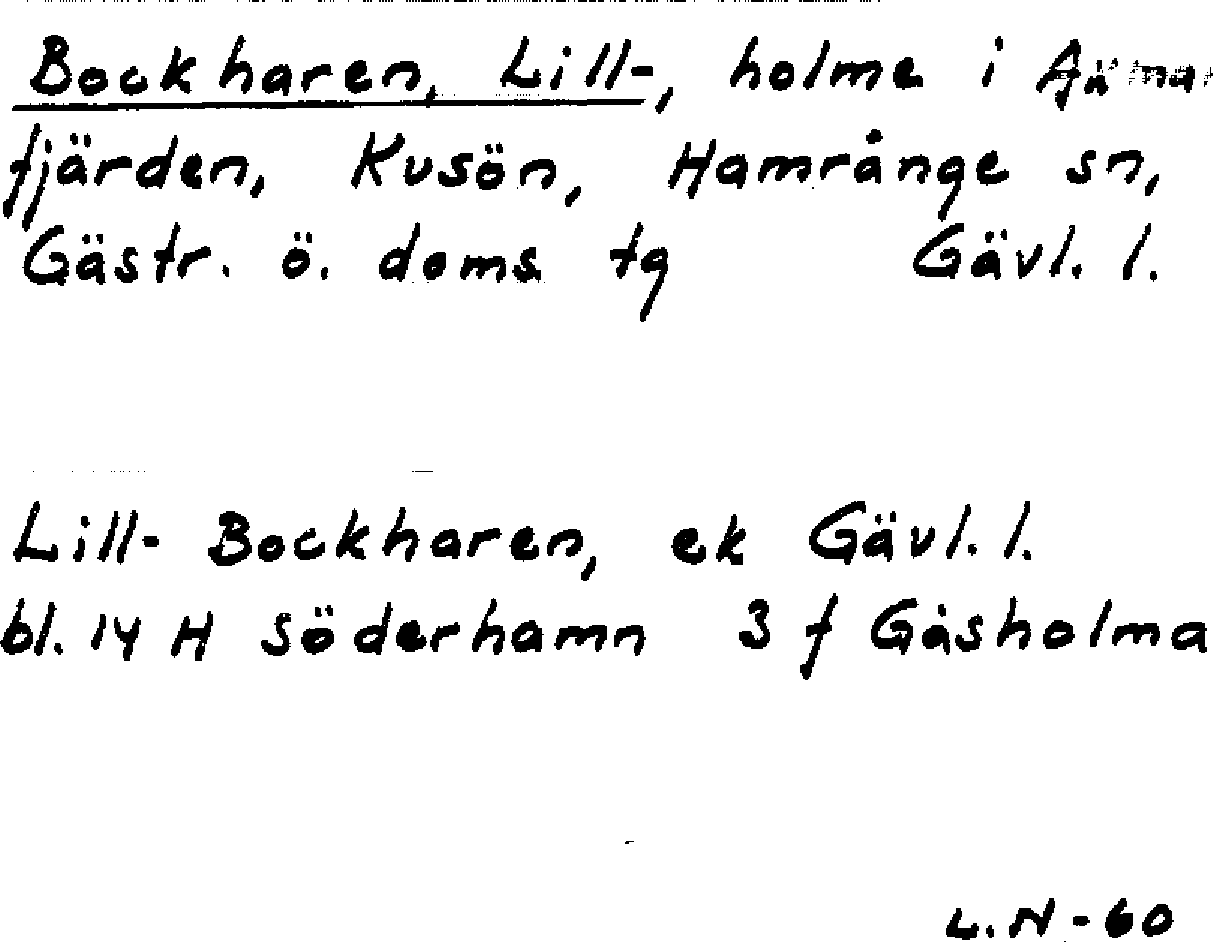 Bockharen, Lill-, holme i Axmar
fjärden, Kusön, Hamrånge sn,
Gästr. ö. doms. tg Gävl. l.
Lill- Bockharen, ek Gävl. l.
bl. 14 H Söderhamn 3 f Gåsholma
L. N - 60